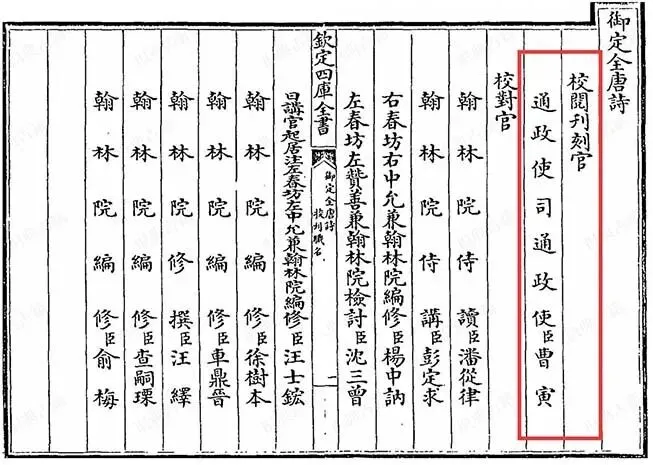 御定全唐詩
校閱刊刻官
通政使司通政使臣曹寅
校對官
翰林院侍讀臣潘從律
翰林院侍講臣彭定求
右春坊右中允兼翰林院編修臣楊中訥
左春坊左贊善兼翰林院檢討臣沈三曾
欽定四庫全書
御定全唐詩
校刊職名
一
日講官起居注左春坊左中允兼翰林院編修臣汪士鋐
翰林院編修臣徐樹本
翰林院編修臣車鼎晉
翰林院修撰臣汪繹
翰林院編修臣查嗣瑮
翰林院編修臣俞梅